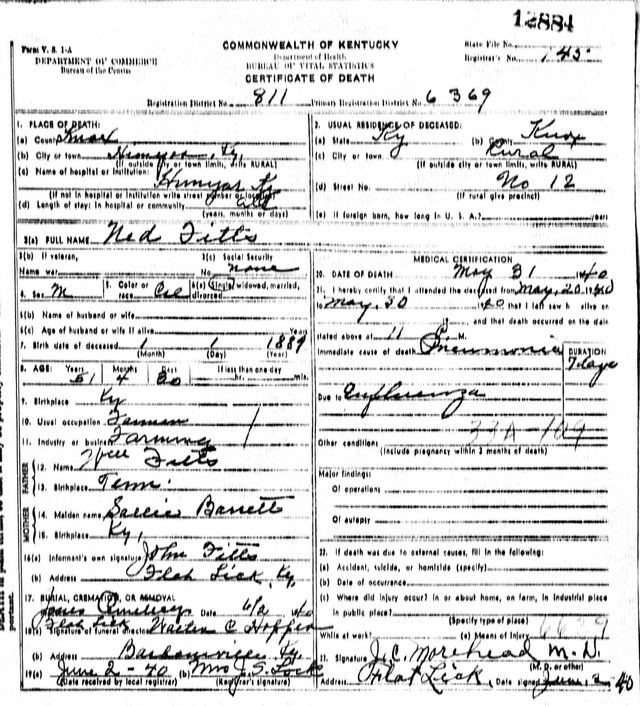 12884
Form V. S. 1-A
DEPARTMENT OF COMMERCE
Bureau of the Census
COMMONWEALTH OF KENTUCKY
Department of Health
BUREAU OF VITAL STATISTICS
CERTIFICATE OF DEATH
State File No.
Registrar's No. 145
Registration District No. 811 Primary Registration District No. 6369
1. PLACE OF DEATH:
(a) County Knox
(b) City or town Himyar, Ky.
(If outside city or town limits, write RURAL)
(c) Name of hospital or institution:
Himyar Ky
(If not in hospital or institution write street number or location)
(d) Length of stay: In hospital or community
(years, months or days)
2. USUAL RESIDENCE OF DECEASED:
(a) State Ky (b) County Knox
(c) City or town Rural
(If outside city or town limits, write RURAL)
(d) Street No. No 12
(If rural give precinct)
(e) If foreign born, how long in U. S. A.? years
3(a) FULL NAME Ned Fitts
3(b) If veteran,
Name war
3(c) Social Security
No. none
4. Sex M 5. Color or race Col 6(a) Single, widowed, married, divorced
6(b) Name of husband or wife
6(c) Age of husband or wife if alive Years
7. Birth date of deceased 1 1 1889
(Month) (Day) (Year)
8. AGE: Years 51 Months 4 Days 30 If less than one day hr. min.
9. Birthplace Ky
10. Usual occupation Farmer
11. Industry or business Farming
FATHER
12. Name Will Fitts
13. Birthplace Tenn.
MOTHER
14. Maiden name Sallie Barrett
15. Birthplace Ky,
16(a) Informant's own signature John Fitts
(b) Address Flat Lick, Ky.
17. BURIAL, CREMATION, OR REMOVAL
Date 6/2 1940
Flat Lick
18(a) Signature of funeral director Walter C Hopper
(b) Address Barbourville Ky.
19(a) June 2-40 (b) Mrs J. S. Lock
(Date received by local registrar) (Registrar's signature)
MEDICAL CERTIFICATION
20. DATE OF DEATH May 31 1940
21. I hereby certify that I attended the deceased from May, 20 1940
to May, 30 1940 that I last saw h alive on
and that death occurred on the date
stated above at 11 P. M.
Immediate cause of death Pneumonia
DURATION
7 days
Due to Influenza
33A-109
Other conditions
(Include pregnancy within 3 months of death)
Major findings:
Of operations
Of autopsy
22. If death was due to external causes, fill in the following:
(a) Accident, suicide, or homicide (specify)
(b) Date of occurrence
(c) Where did injury occur? In or about home, on farm, in industrial place
in public place?
(Specify type of place)
While at work? (e) Means of Injury
23. Signature J. C. Morehead M. D.
(M. D. or other)
Address Flat Lick, Date signed June 2 40